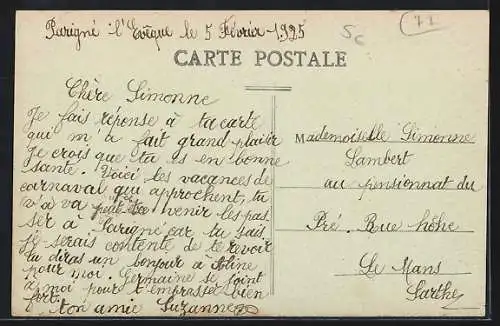 Parigné l'Evêque le 5 Février 1925
5c
71
CARTE POSTALE
Chère Simonne
Je fais réponse à ta carte
qui m'a fait grand plaisir
Je crois que tu es en bonne
santé. Voici les vacances de
carnaval qui approchent, tu
n'a va venir les pas
ser à Parigné car tu sais
je serais contente de te revoir
tu diras un bonjour à Aline
pour moi. Germaine se joint
à moi pour t'embrasser bien
fort. ton amie Suzanne
Mademoiselle Simonne
Lambert
au pensionnat du
Pré. Rue hôhe
Le Mans
Sarthe